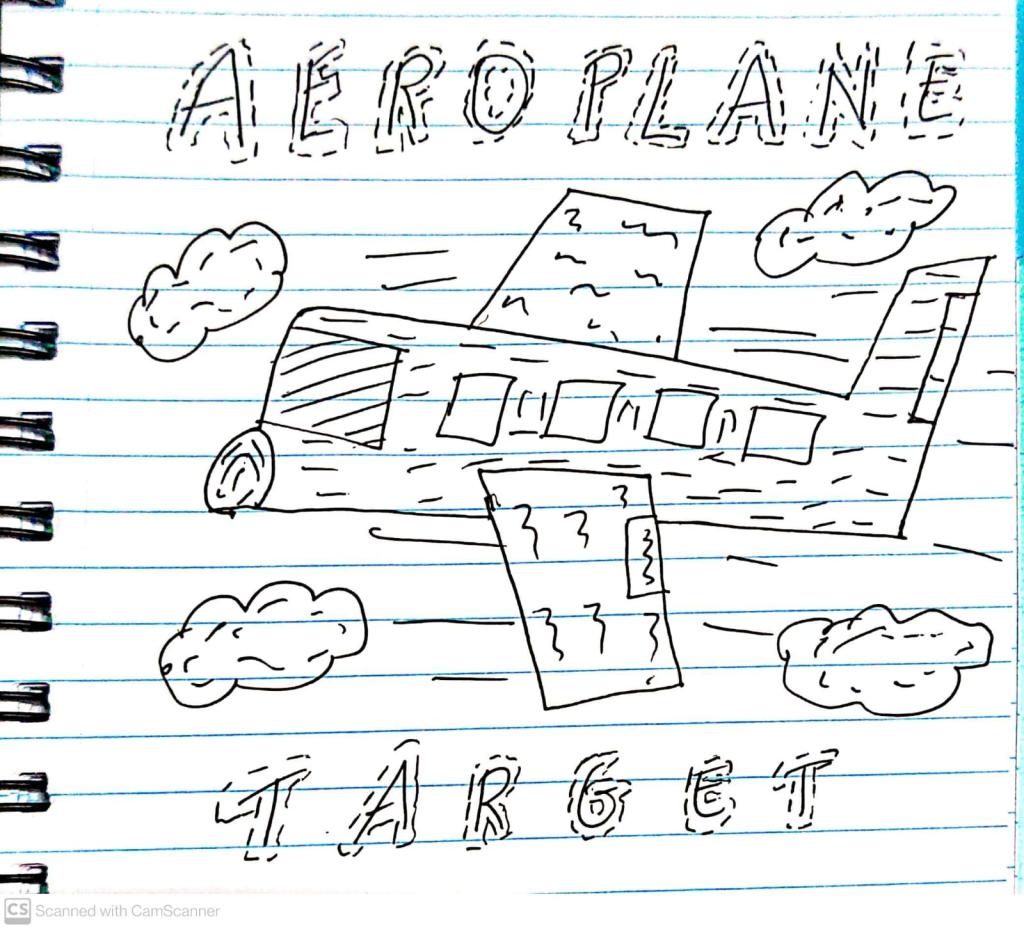 AEROPLANE
TARGET
CS Scanned with CamScanner